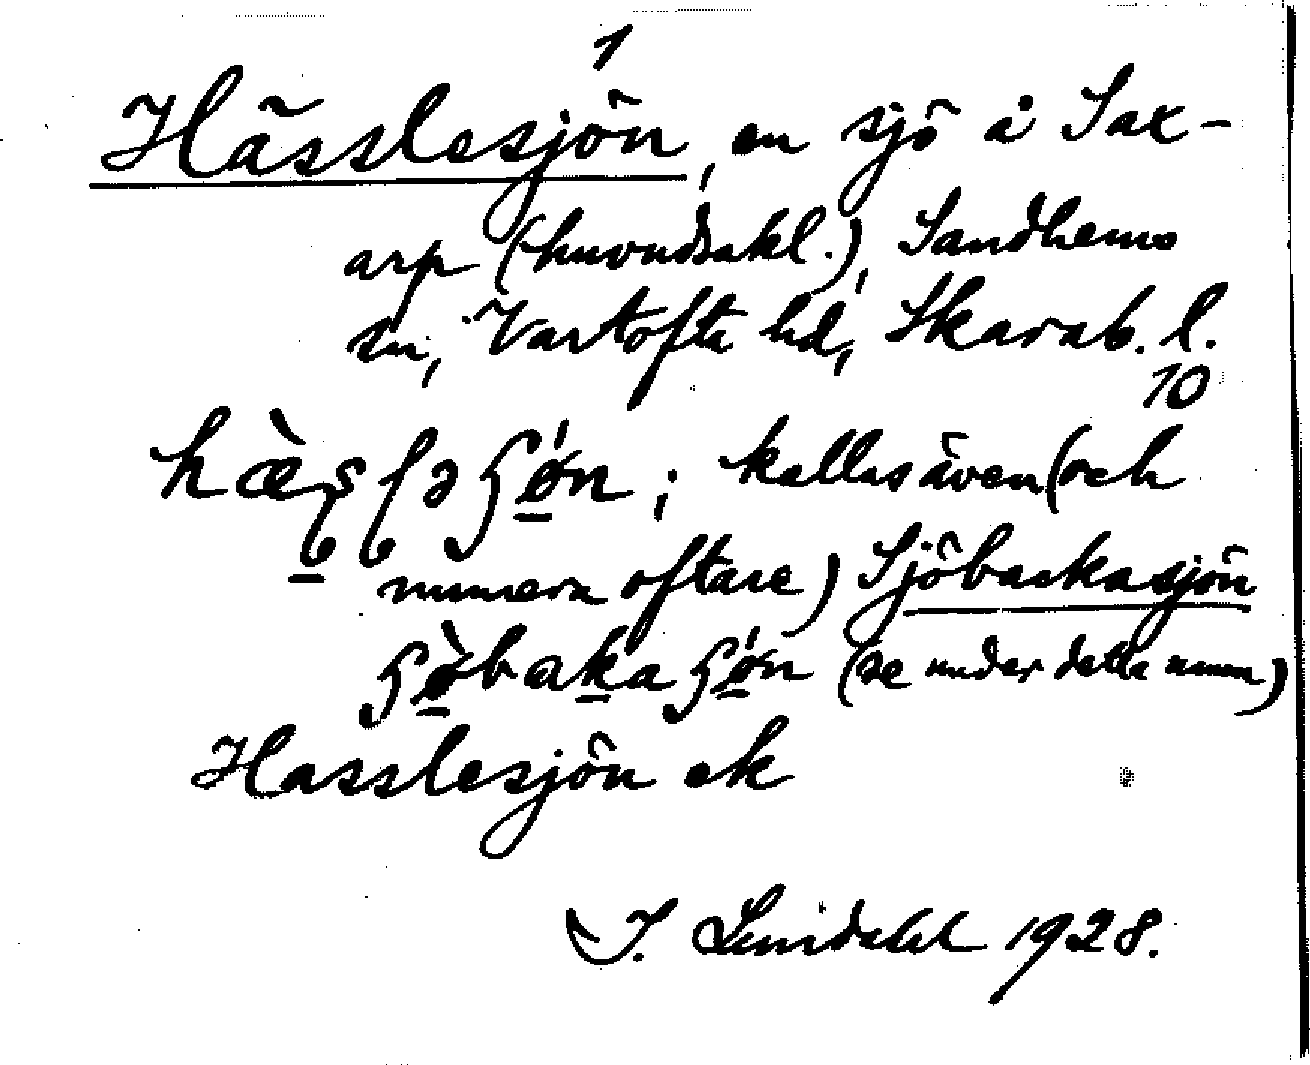 1
Hässlesjön, en sjö å Sax-
arp (huvudsakl.), Sandhems
sn, Vartofta hd, Skarab. l.
10
hæ̀sləʃǿn; kallas även (och
numera oftare) Sjöbackasjön
ʃø̀bakaʃǿn (se under detta namn)
Hasslesjön ek
I. Lundahl 1928.